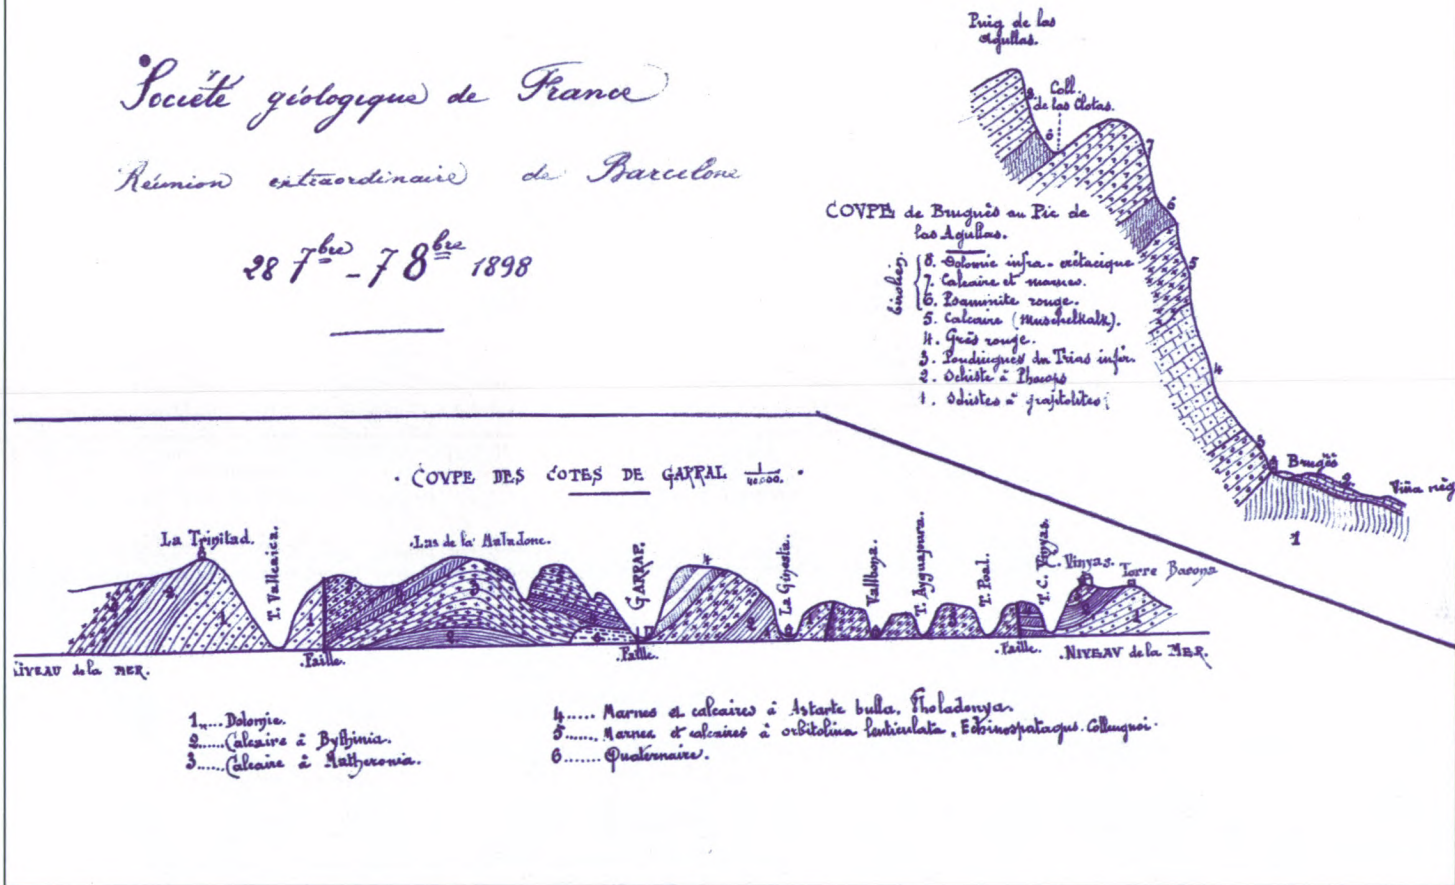 Société géologique de France
Réunion extraordinaire de Barcelone
28 7bre - 7 8bre 1898
Puig de las
Agullas.
Coll.
de las Clotas.
8
6
7
6
5
4
3
Brugès
2
1
COUPE de Brugués au Pic de
las Agullas.
8. Dolomie infra-crétacique
7. Calcaire et marnes.
6. Psaminite rouge.
5. Calcaire (Muschelkalk).
4. Grès rouge.
3. Poudingues du Trias infér.
2. Schiste à Phacops
1. Schistes à graptolites
. COUPE DES COTES DE GARRAF 1/40.000. .
La Trinitad.
T. Vallcaica.
.Las de la Maladone.
GARRAF.
La Ginesta.
Vallbona.
T. Ayguapoura.
T. Poal.
T. C. Vinyas.
C. Vinyas.
Torre Barona
NIVEAU de la MER.
.Faille.
.Faille.
.Faille.
.NIVEAU de la MER.
1.... Dolomie.
2.....Calcaire à Bythinia.
3.....Calcaire à Matheronia.
4..... Marnes et calcaires à Astarte bulla, Pholadomya.
5..... Marnes et calcaires à orbitolina lenticulata, Echinospatagus. Collegnoi.
6....... Quaternaire.